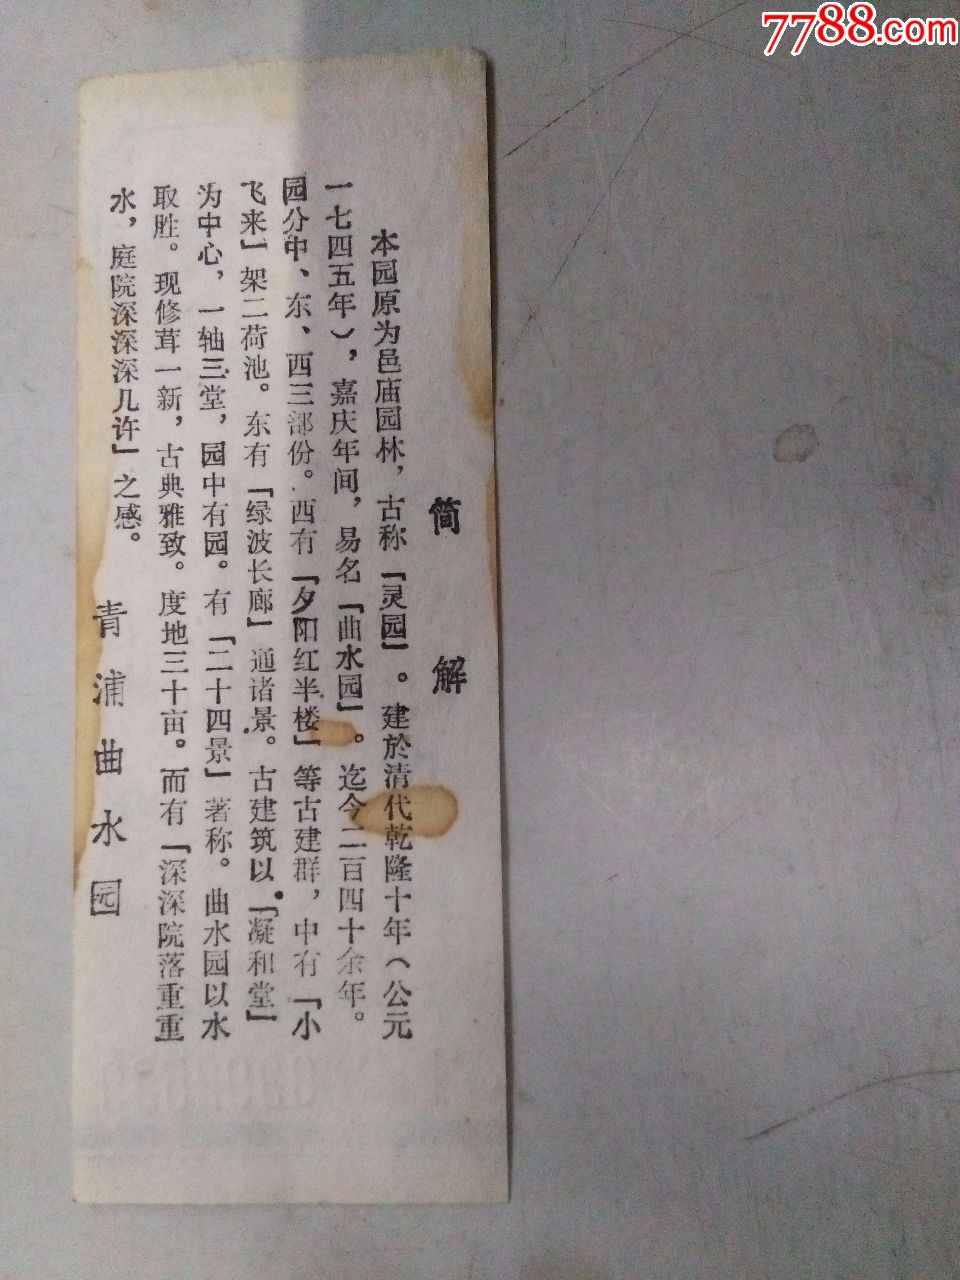 7788.com
简解
本园原为邑庙园林，古称「灵园」。建於清代乾隆十年（公元
一七四五年），嘉庆年间，易名「曲水园」。迄今二百四十余年。
园分中、东、西三部份。西有「夕阳红半楼」等古建群，中有「小
飞来」架二荷池。东有「绿波长廊」通诸景。古建筑以「凝和堂」
为中心，一轴三堂，园中有园。有「二十四景」著称。曲水园以水
取胜。现修葺一新，古典雅致。度地三十亩。而有「深深院落重重
水，庭院深深深几许」之感。
青浦曲水园